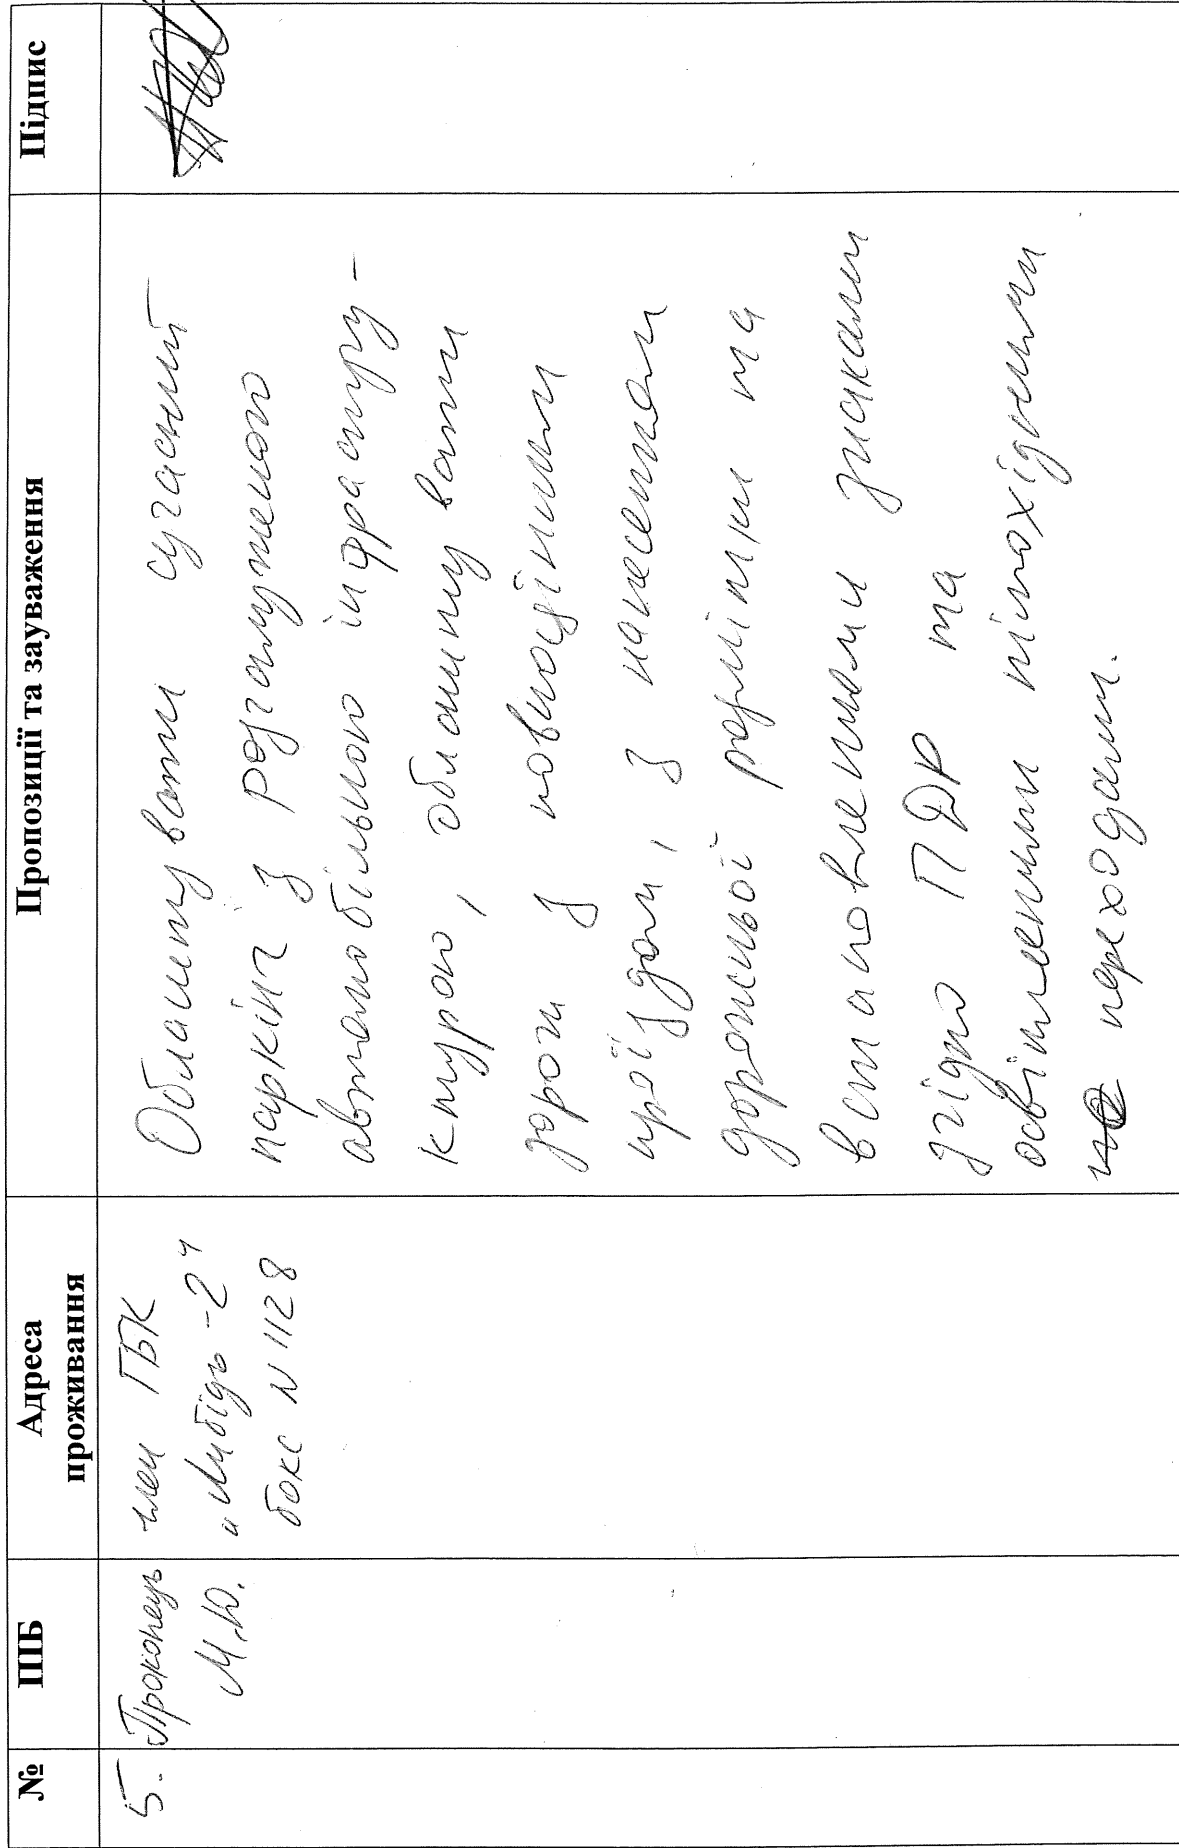 №
ПІБ
Адреса
проживання
Пропозиції та зауваження
Підпис
5.
Прокопець
М.Ю.
член ГБК
„Либідь-2"
бокс N 1128
Облаштувати сучасний
паркінг з розгалуженого
автомобільного інфрастру-
ктурою, облаштувати
дороги з повноцінними
проїздом, з нанесенням
дорожньої розмітки та
встановленими знаками
згідно ПДР та
освітленними пішохідними
переходами.